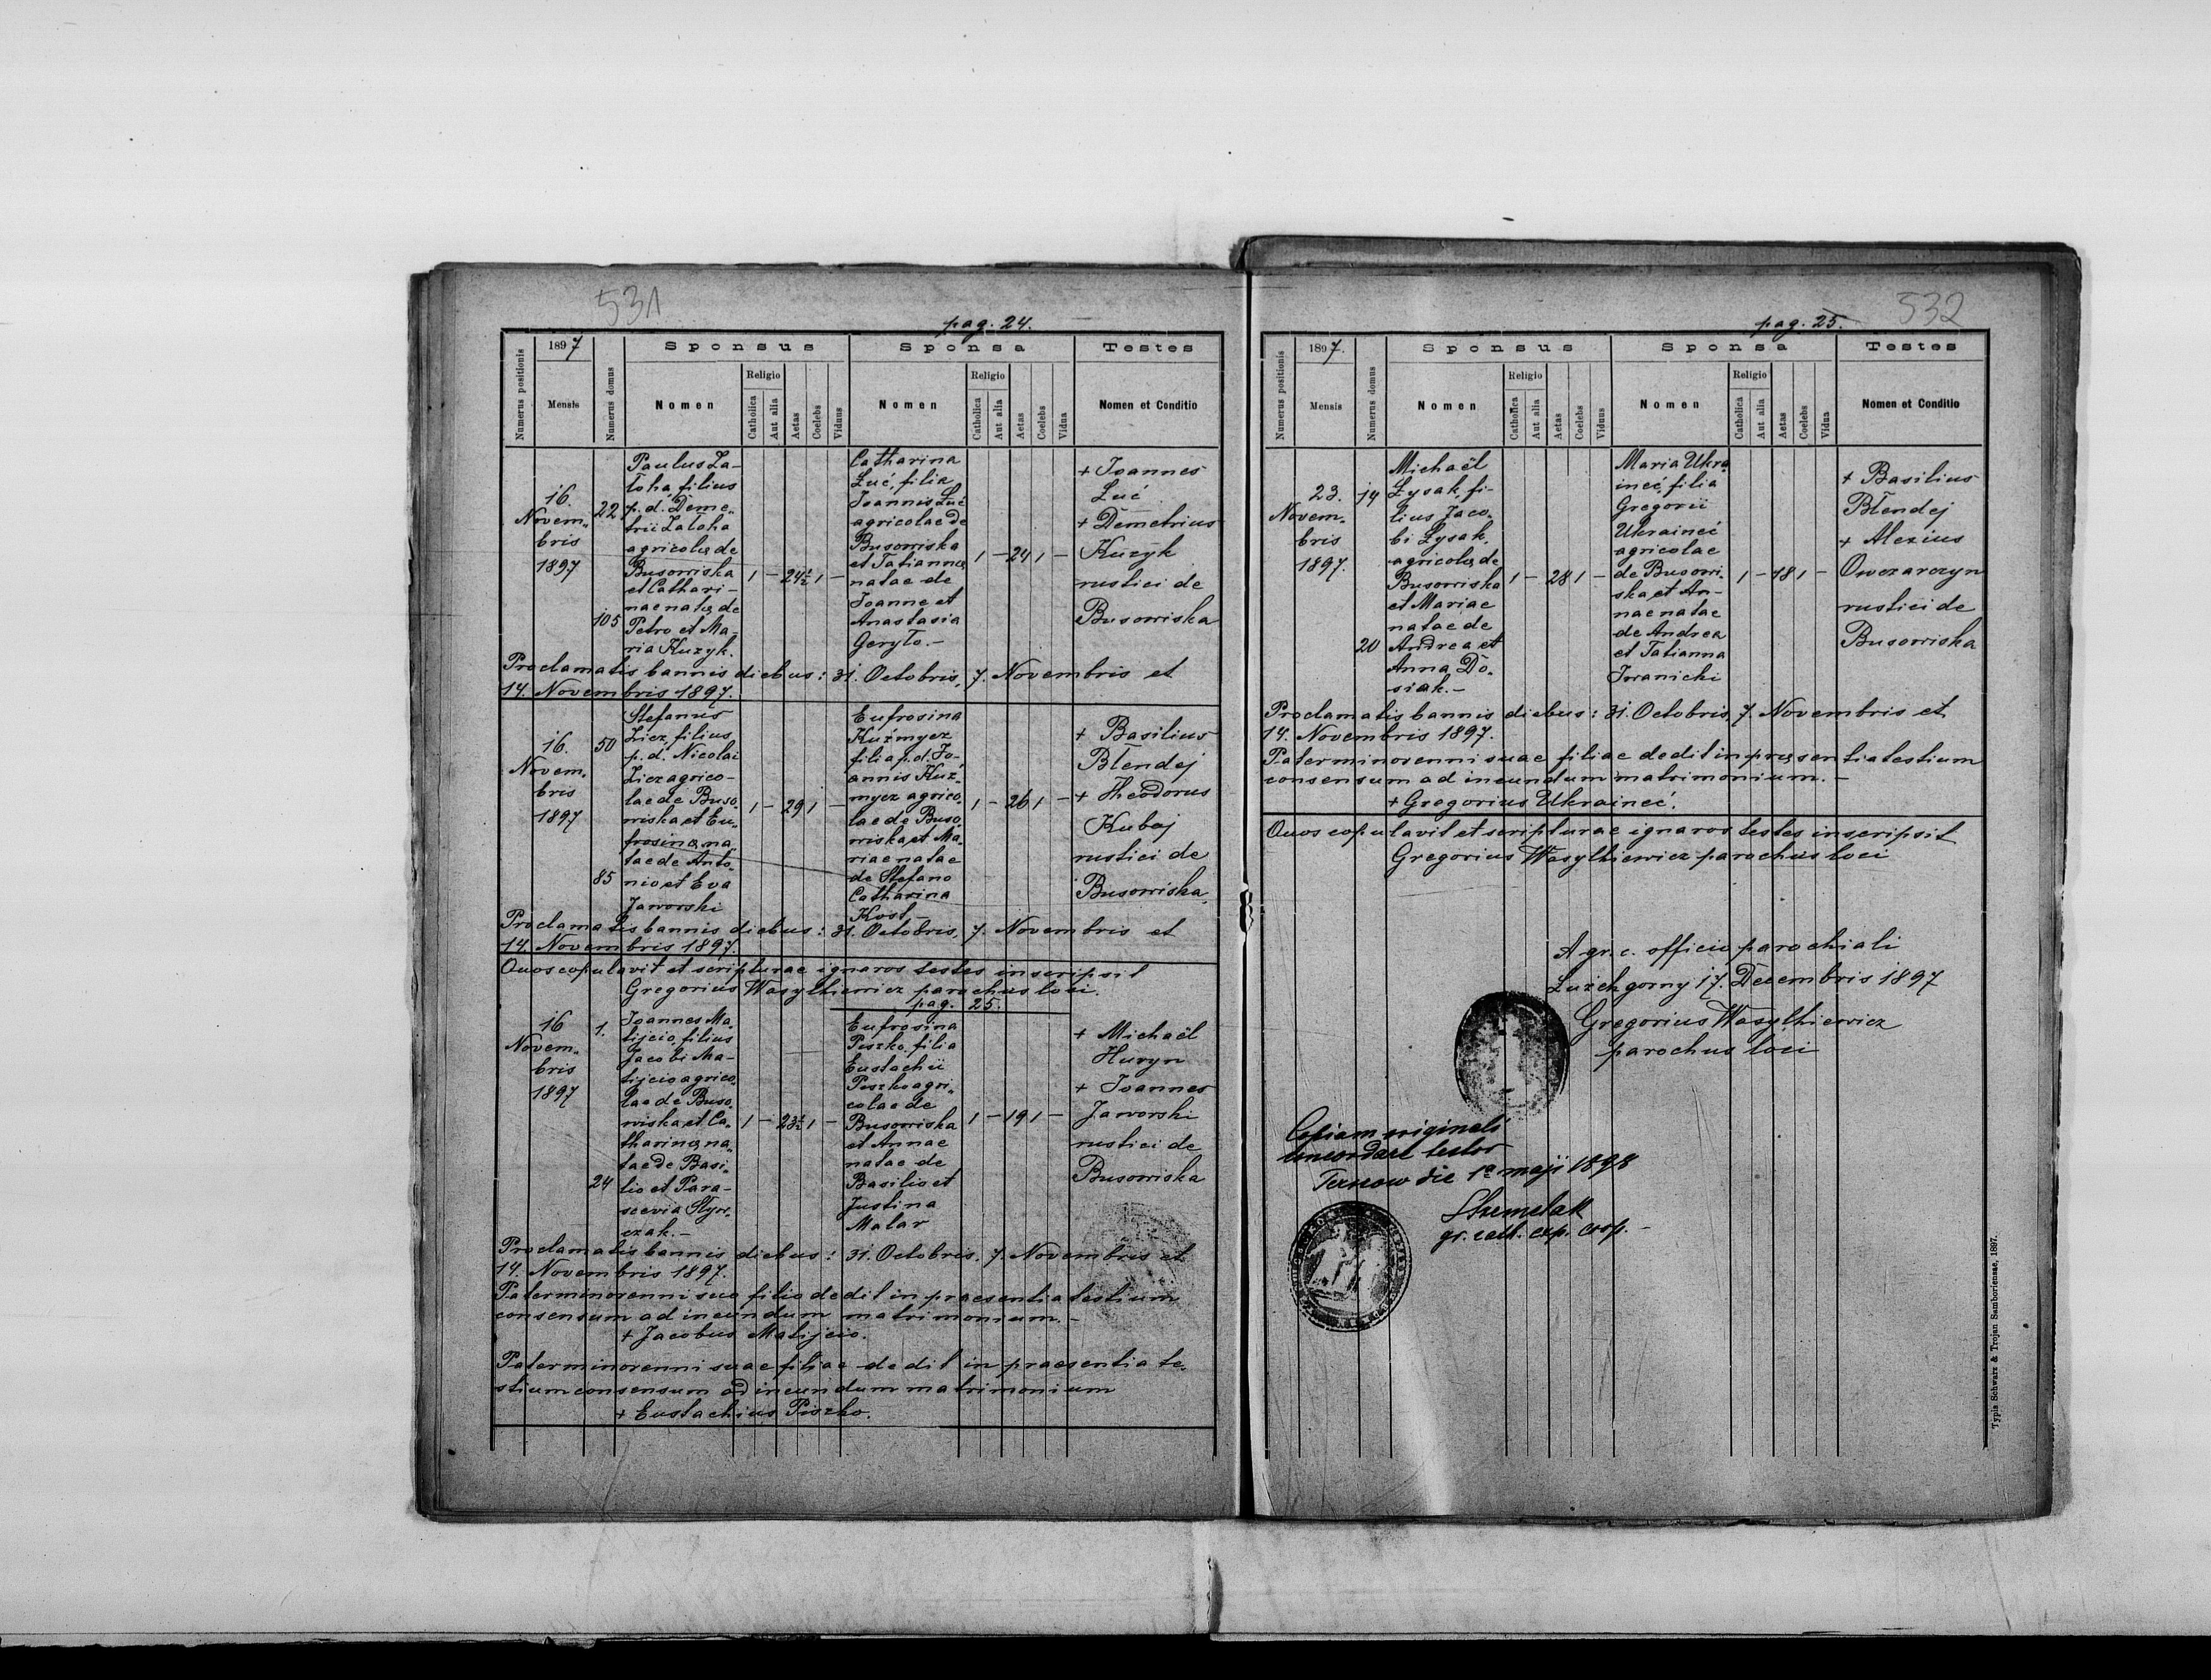 531
pag. 24.
Numerus positionis
1897
Mensis
Numerus domus
Sponsus
Nomen
Religio
Catholica
Aut alia
Aetas
Coelebs
Viduus
Sponsa
Nomen
Religio
Catholica
Aut alia
Aetas
Coelebs
Vidua
Testes
Nomen et Conditio
16.
Novem„
bris
1897
22
105
Paulus Za-
toha, filius
p. d. Deme„
trii Zatoha
agricolae de
Busowiska
et Cathari-
nae natae de
Petro et Ma-
ria Kuzyk.
1 – 24½ 1 –
Catharina
Łuć, filia
Joannis Łuć
agricolae de
Busowiska
et Tatiannae
natae de
Joanne et
Anastasia
Geryło.–
1 – 24 1 –
+ Joannes
Łuć
+ Demetrius
Kuzyk
rustici de
Busowiska
Proclamatis bannis diebus: 31. Octobris, 7. Novembris et
14. Novembris 1897.
16.
Novem„
bris
1897
50
85
Stefanus
Licz, filius
p. d. Nicolai
Licz agrico-
lae de Buso„
wiska et Eu„
frosinae na„
tae de Anto„
nio et Eva
Jaworski
1 – 29 1 –
Eufrosina
Kuźmycz
filia p. d. Jo-
annis Kuź-
mycz agrico„
lae de Buso„
wiska et Ma„
riae natae
de Stefano
Catharina
Kost –
1 – 26 1 –
+ Basilius
Błendej
+ Theodorus
Kubaj
rustici de
Busowiska
Proclamatis bannis diebus: 31. Octobris, 7. Novembris et
14. Novembris 1897.
Quos copulavit et scripturae ignaros testes inscripsit
Gregorius Wasylkiewicz parochus loci.
pag. 25.
16
Novem„
bris
1897
1.
24
Joannes Ma„
tijcio, filius
Jacobi Ma-
tijcio agrico„
lae de Buso„
wiska et Ca„
tharinae na„
tae de Basi„
lio et Para-
scevia Styr„
czak.–
1 – 23½ 1 –
Eufrosina
Piszko, filia
Eustachii
Piszko agri„
colae de
Busowiska
et Annae
natae de
Basilio et
Justina
Malar
1 – 19 1 –
+ Michaël
Huzyn
+ Joannes
Jaworski
rustici de
Busowiska
Proclamatis bannis diebus: 31. Octobris, 7. Novembris et
14. Novembris 1897.
Pater minorenni suo filio dedit in praesentia testium
consensum ad ineundum matrimonium.–
+ Jacobus Matijcio.
Pater minorenni suae filiae dedit in praesentia te„
stium consensum ad ineundum matrimonium
+ Eustachius Piszko.
532
pag. 25.
Numerus positionis
1897.
Mensis
Numerus domus
Sponsus
Nomen
Religio
Catholica
Aut alia
Aetas
Coelebs
Viduus
Sponsa
Nomen
Religio
Catholica
Aut alia
Aetas
Coelebs
Vidua
Testes
Nomen et Conditio
23.
Novem„
bris
1897.
14
20
Michaël
Łysak, fi-
lius Jaco„
bi Łysak,
agricolae de
Busowiska
et Mariae
natae de
Andrea et
Anna Do„
siak.–
1 – 28 1 –
Maria Ukra
ineć, filia
Gregorii
Ukraineć
agricolae
de Busowi„
ska et An-
nae natae
de Andrea
et Tatianna
Iwanicki
1 – 18 1 –
+ Basilius
Błendej
+ Alexius
Owczarczyn
rustici de
Busowiska
Proclamatis bannis diebus: 31. Octobris, 7. Novembris et
14. Novembris 1897.
Pater minorenni suae filiae dedit in praesentia testium
consensum ad ineundum matrimonium.–
+ Gregorius Ukraineć.
Quos copulavit et scripturae ignaros testes inscripsit
Gregorius Wasylkiewicz parochus loci
A gr. c. officio parochiali
Łużek gorny 17. Decembris 1897
Gregorius Wasylkiewicz
parochus loci
Copiam originali
concordare testor
Terszow die 1a maji 1898
Stremelak
gr. cath. exp. coop.–
Typis Schwarz & Trojan Samboriensae, 1897.